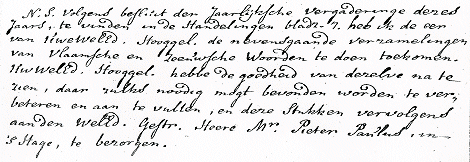 N.S. Volgens besluit der Jaarlijksche vergaderinge dezes
Jaars, te vinden in de Handelingen bladz. 7. heb ik de eer
van UweWelEd. Hooggel. de nevensgaande verzamelingen
van Vlaamsche en Zeeuwsche Woorden te doen toekomen.
UwWelEd. Hooggel. hebbe de goedheid van dezelve na te
zien, daar zulks noodig mogt bevonden worden te ver-
beteren en aan te vullen, en deze Stukken vervolgens
aanden WelEd. Gestr. Heere Mr. Pieter Paulus, in
's Hage, te bezorgen.